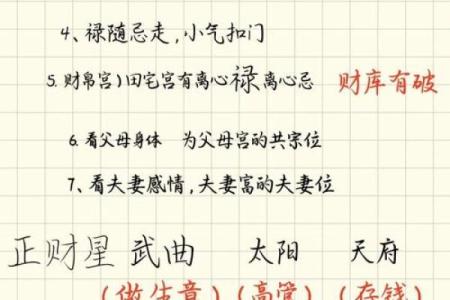 4、禄随忌走,小气扣门
5.财帛宫)田宅宫有离心禄离心忌 财库有破
6.看父母身体 为父母宫的共宗位
7、看夫妻感情,夫妻富的夫妻位
正财星 武曲 太阳 天府
(做生意)(高管)(存钱)